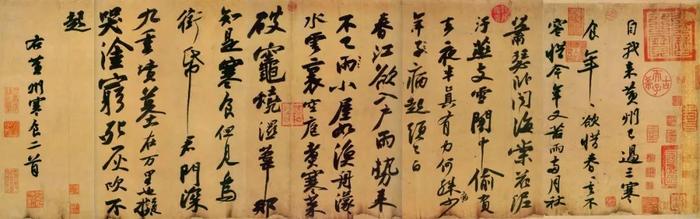 自我來黃州已過三寒
食年〻欲惜春〻去不
容惜今年又苦雨兩月秋
蕭瑟臥聞海棠花泥
汙燕支雪闇中偷負
去夜半真有力何殊病少
年子病起頭已白
春江欲入戶雨勢來
不已雨小屋如漁舟濛〻
水雲裏空庖煮寒菜
破竈燒濕葦那
知是寒食但見烏
銜帋君門深
九重墳墓在萬里也擬
哭塗窮死灰吹不
起
右黃州寒食二首